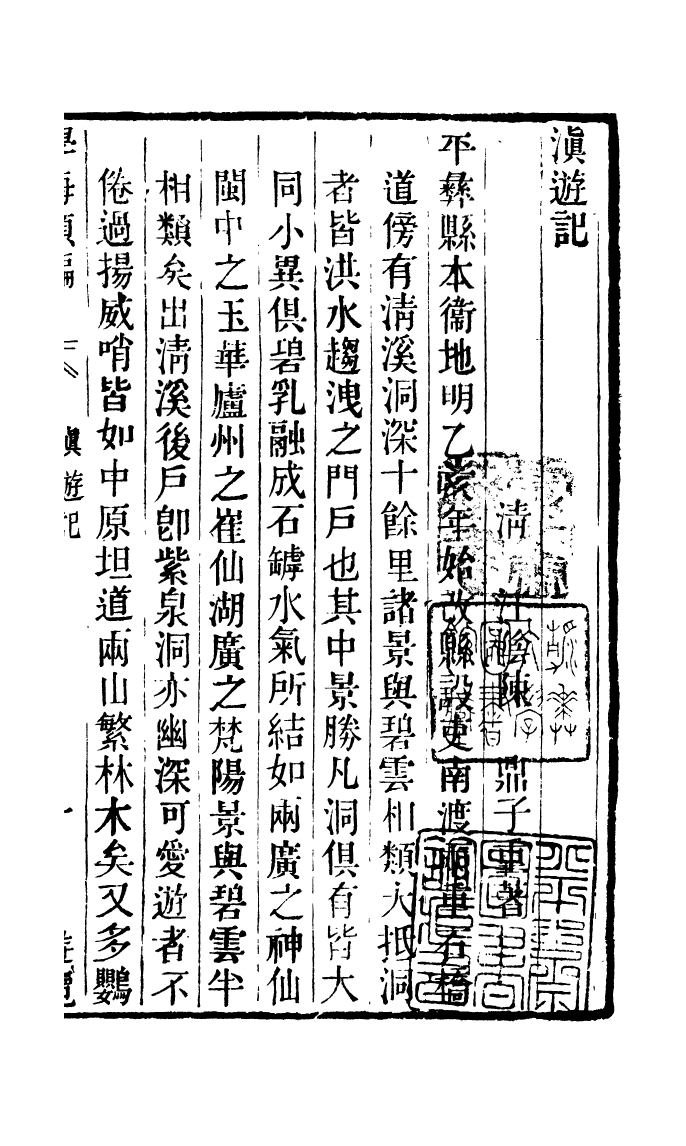 滇遊記
清 江陰陳 鼎子重著
平彝縣本衞地明乙亥年始改縣設吏南渡洞華石橋
道傍有清溪洞深十餘里諸景與碧雲相類大抵洞
者皆洪水趨洩之門戶也其中景勝凡洞俱有皆大
同小異俱碧乳融成石罅水氣所結如兩廣之神仙
閩中之玉華廬州之崔仙湖廣之梵陽景與碧雲半
相類矣出清溪後戶卽紫泉洞亦幽深可愛遊者不
倦過揚威哨皆如中原坦道兩山繁林木矣又多鸚
學海類編 滇遊記 一 遊覽